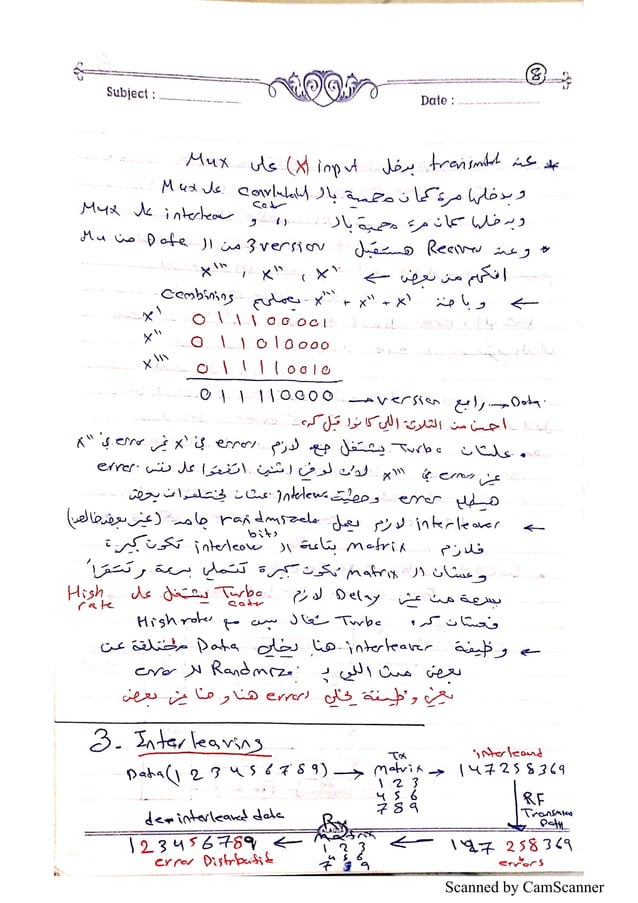 8
Subject :
Date :
* عند transmited بدخل input (x) على Mux
وبدخلها مرة كمان محمية بالـ convlutional coder على Mux
وبدخلها كمان مرة محمية بالـ " و interleaver على Mux
* وعند Reciver هستقبل 3 version من الـ Data من Mu
x' , x'' , x''' ← من بعض
← و x' + x'' + x''' يعملهم Combining
x' 0 1 1 1 0 0 0 0 1
x'' 0 1 1 0 1 0 0 0 0
x''' 0 1 1 1 1 0 0 1 0
0 1 1 1 1 0 0 0 0 → version رابع → Data
احسن من الثلاثة اللي كانوا قبل كده
علشان Turbo يشتغل صح لازم error في x' غير error في x''
غير error في x''' لان لو في اتنين اتفقوا على نفس error
هيطلع error وحطيت Inteleave عشان يختلفوا عن بعض
← interleaver لازم يعمل randmize جامد (غير بعض خالص)
فلازم Matrix بتاعة الـ interleaver bits تكون كبيرة
وعشان الـ Matrix تكون كبيرة تتملي بسرعة وتتقرأ
بسرعة من غير Delay لازم Turbo coder يشتغل على High rate
فعشان كده Turbo شغال بس مع High rate
← وظيفة interleaver هنا يخلي Data مختلفة عن
بعض من اللي بـ Randmize للـ error
يعني وظيفته يخلي error هنا وهنا غير بعض
3- Interleaving
Data(1 2 3 4 5 6 7 8 9) → Tx Matrix → interleaved 1 4 7 2 5 8 3 6 9
1 2 3
4 5 6
7 8 9
RF Transmission Path
de-interleaved date
1 2 3 4 5 6 7 8 9 ← Rx Matrix ← 1 4 7 2 5 8 3 6 9
1 2 3
4 5 6
7 8 9
error Distributed
errors
Scanned by CamScanner